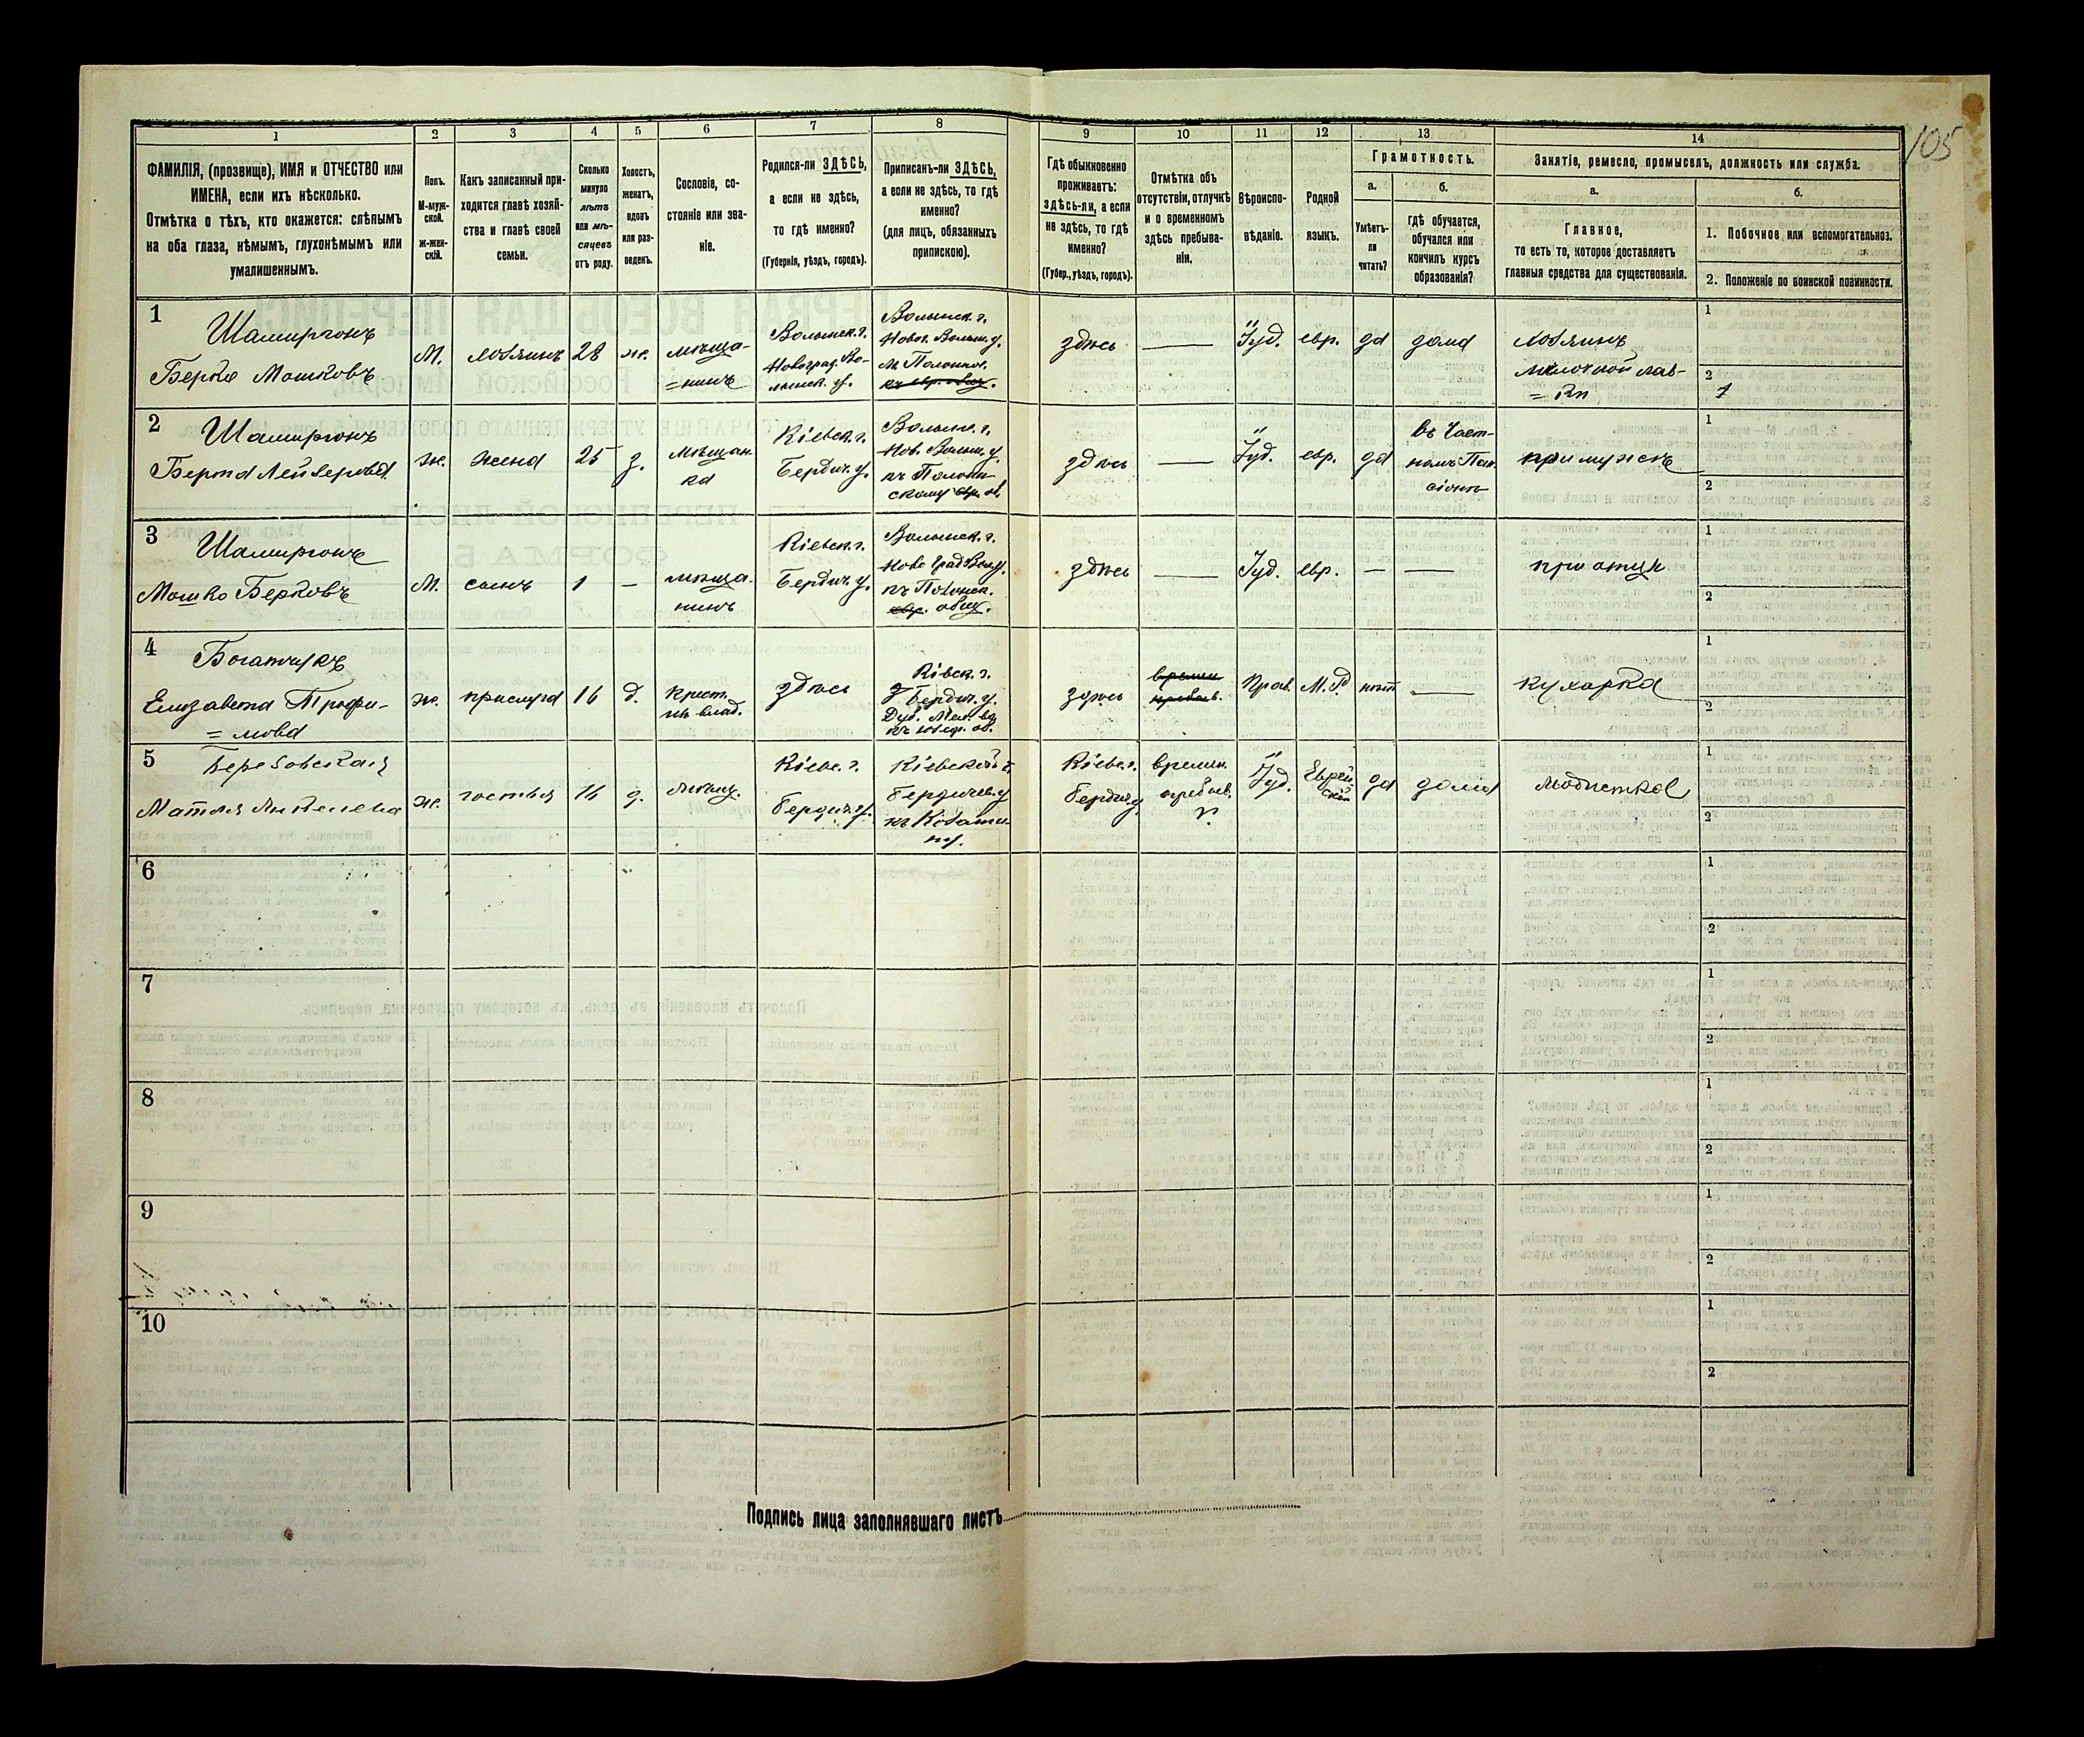 105
1 2 3 4 5 6 7 8 9 10 11 12 13 14
ФАМИЛІЯ, (прозвище), ИМЯ и ОТЧЕСТВО или
ИМЕНА, если ихъ нѣсколько.
Отмѣтка о тѣхъ, кто окажется: слѣпымъ
на оба глаза, нѣмымъ, глухонѣмымъ или
умалишеннымъ.
Полъ.
М-муж-
ской.
ж-жен-
скій.
Какъ записанный при-
ходится главѣ хозяй-
ства и главѣ своей
семьи.
Сколько
минуло
лѣтъ
или мѣ-
сяцевъ
отъ роду.
Холостъ,
женатъ,
вдовъ
или раз-
веденъ.
Сословіе, со-
стояніе или зва-
ніе.
Родился-ли ЗДѢСЬ,
а если не здѣсь,
то гдѣ именно?
(Губернія, уѣздъ, городъ).
Приписанъ-ли ЗДѢСЬ,
а если не здѣсь, то гдѣ
именно?
(для лицъ, обязанныхъ
припискою).
Гдѣ обыкновенно
проживаетъ:
здѣсь-ли, а если
не здѣсь, то гдѣ
именно?
(Губер., уѣздъ, городъ).
Отмѣтка объ
отсутствіи, отлучкѣ
и о временномъ
здѣсь пребыва-
ніи.
Вѣроиспо-
вѣданіе.
Родной
языкъ.
Грамотность.
а.
Умѣетъ-
ли
читать?
б.
гдѣ обучается,
обучался или
кончилъ курсъ
образованія?
Занятіе, ремесло, промыселъ, должность или служба.
а.
Главное,
то есть то, которое доставляетъ
главныя средства для существованія.
б.
1. Побочное или вспомогательное.
2. Положеніе по воинской повинности.
1
Шамиргонъ
Берко Мошковъ
М. хозяинъ 28 ж.
мѣща-
=нинъ
Волынск. г.
Новоград. Во-
лынск. у.
Волынск. г.
Новог. Волын. у.
м. Полонног.
здѣсь — Іуд. евр. да дома
хозяинъ
мелочной лав-
=ки
1
2
1
2
Шамиргонъ
Берта Лейзерова
ж. жена 25 з.
мѣщан-
ка
Кіевск. г.
Бердич. у.
Волын. г.
Нов. Волын. у.
къ Полонн-
скому евр. об.
здѣсь — Іуд. евр. да
въ Част-
номъ Пан-
сіонѣ
при мужѣ
1
2
3
Шамиргонъ
Мошко Берковъ
М. сынъ 1 —
мѣща-
нинъ
Кіевск. г.
Бердич. у.
Волынск. г.
Ново Град Вол. у.
къ Полонск.
евр. общ.
здѣсь — Іуд. евр. — —
при отцѣ
1
2
4
Богатчукъ
Елизавета Трофи-
=мова
ж. прислуга 16 д.
Крест.
изъ влад.
здѣсь
Кіевск. г.
Бердич. у.
здѣсь
времен.
Прав. М. Р. нѣт —
кухарка
1
2
5
Березовская
Матля
ж. гостья 16 д. мѣщ.
Кіевс. г.
Бердич. у.
Кіевской г.
Бердичев. у.
Кіевс. г.
Бердич. у.
времен.
пребыв.
Іуд.
Еврей-
скій
да дома
модистка
1
2
6
1
2
7
1
2
8
1
2
9
1
2
10
1
2
Подпись лица заполнявшаго листъ